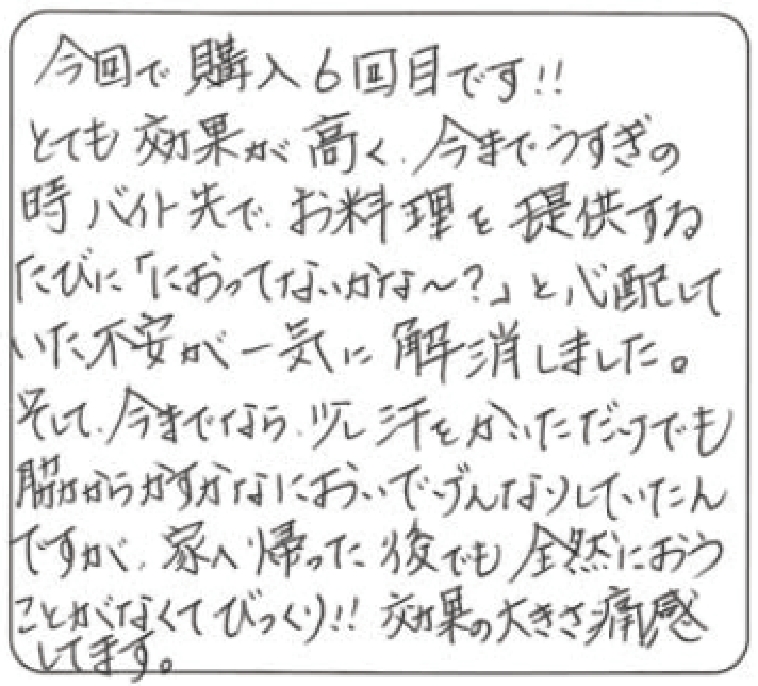 今回で購入6回目です!!
とても効果が高く、今までうすぎの
時バイト先で、お料理を提供する
たびに「におってないかな〜?」と心配して
いた不安が一気に解消しました。
そして、今までなら、少し汗をかいただけでも
脇からかすかなにおいでげんなりしていたん
ですが、家へ帰った後でも全然におう
ことがなくてびっくり!! 効果の大きさ痛感
してます。